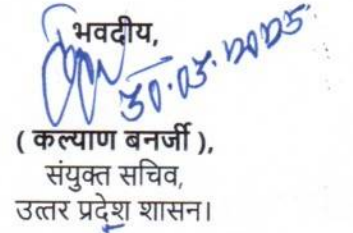 भवदीय,
30.05.2025
( कल्याण बनर्जी ),
संयुक्त सचिव,
उत्तर प्रदेश शासन।